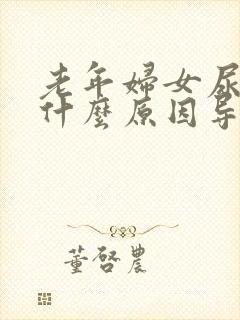 老年婦女尿
什麼原因导
董啓農